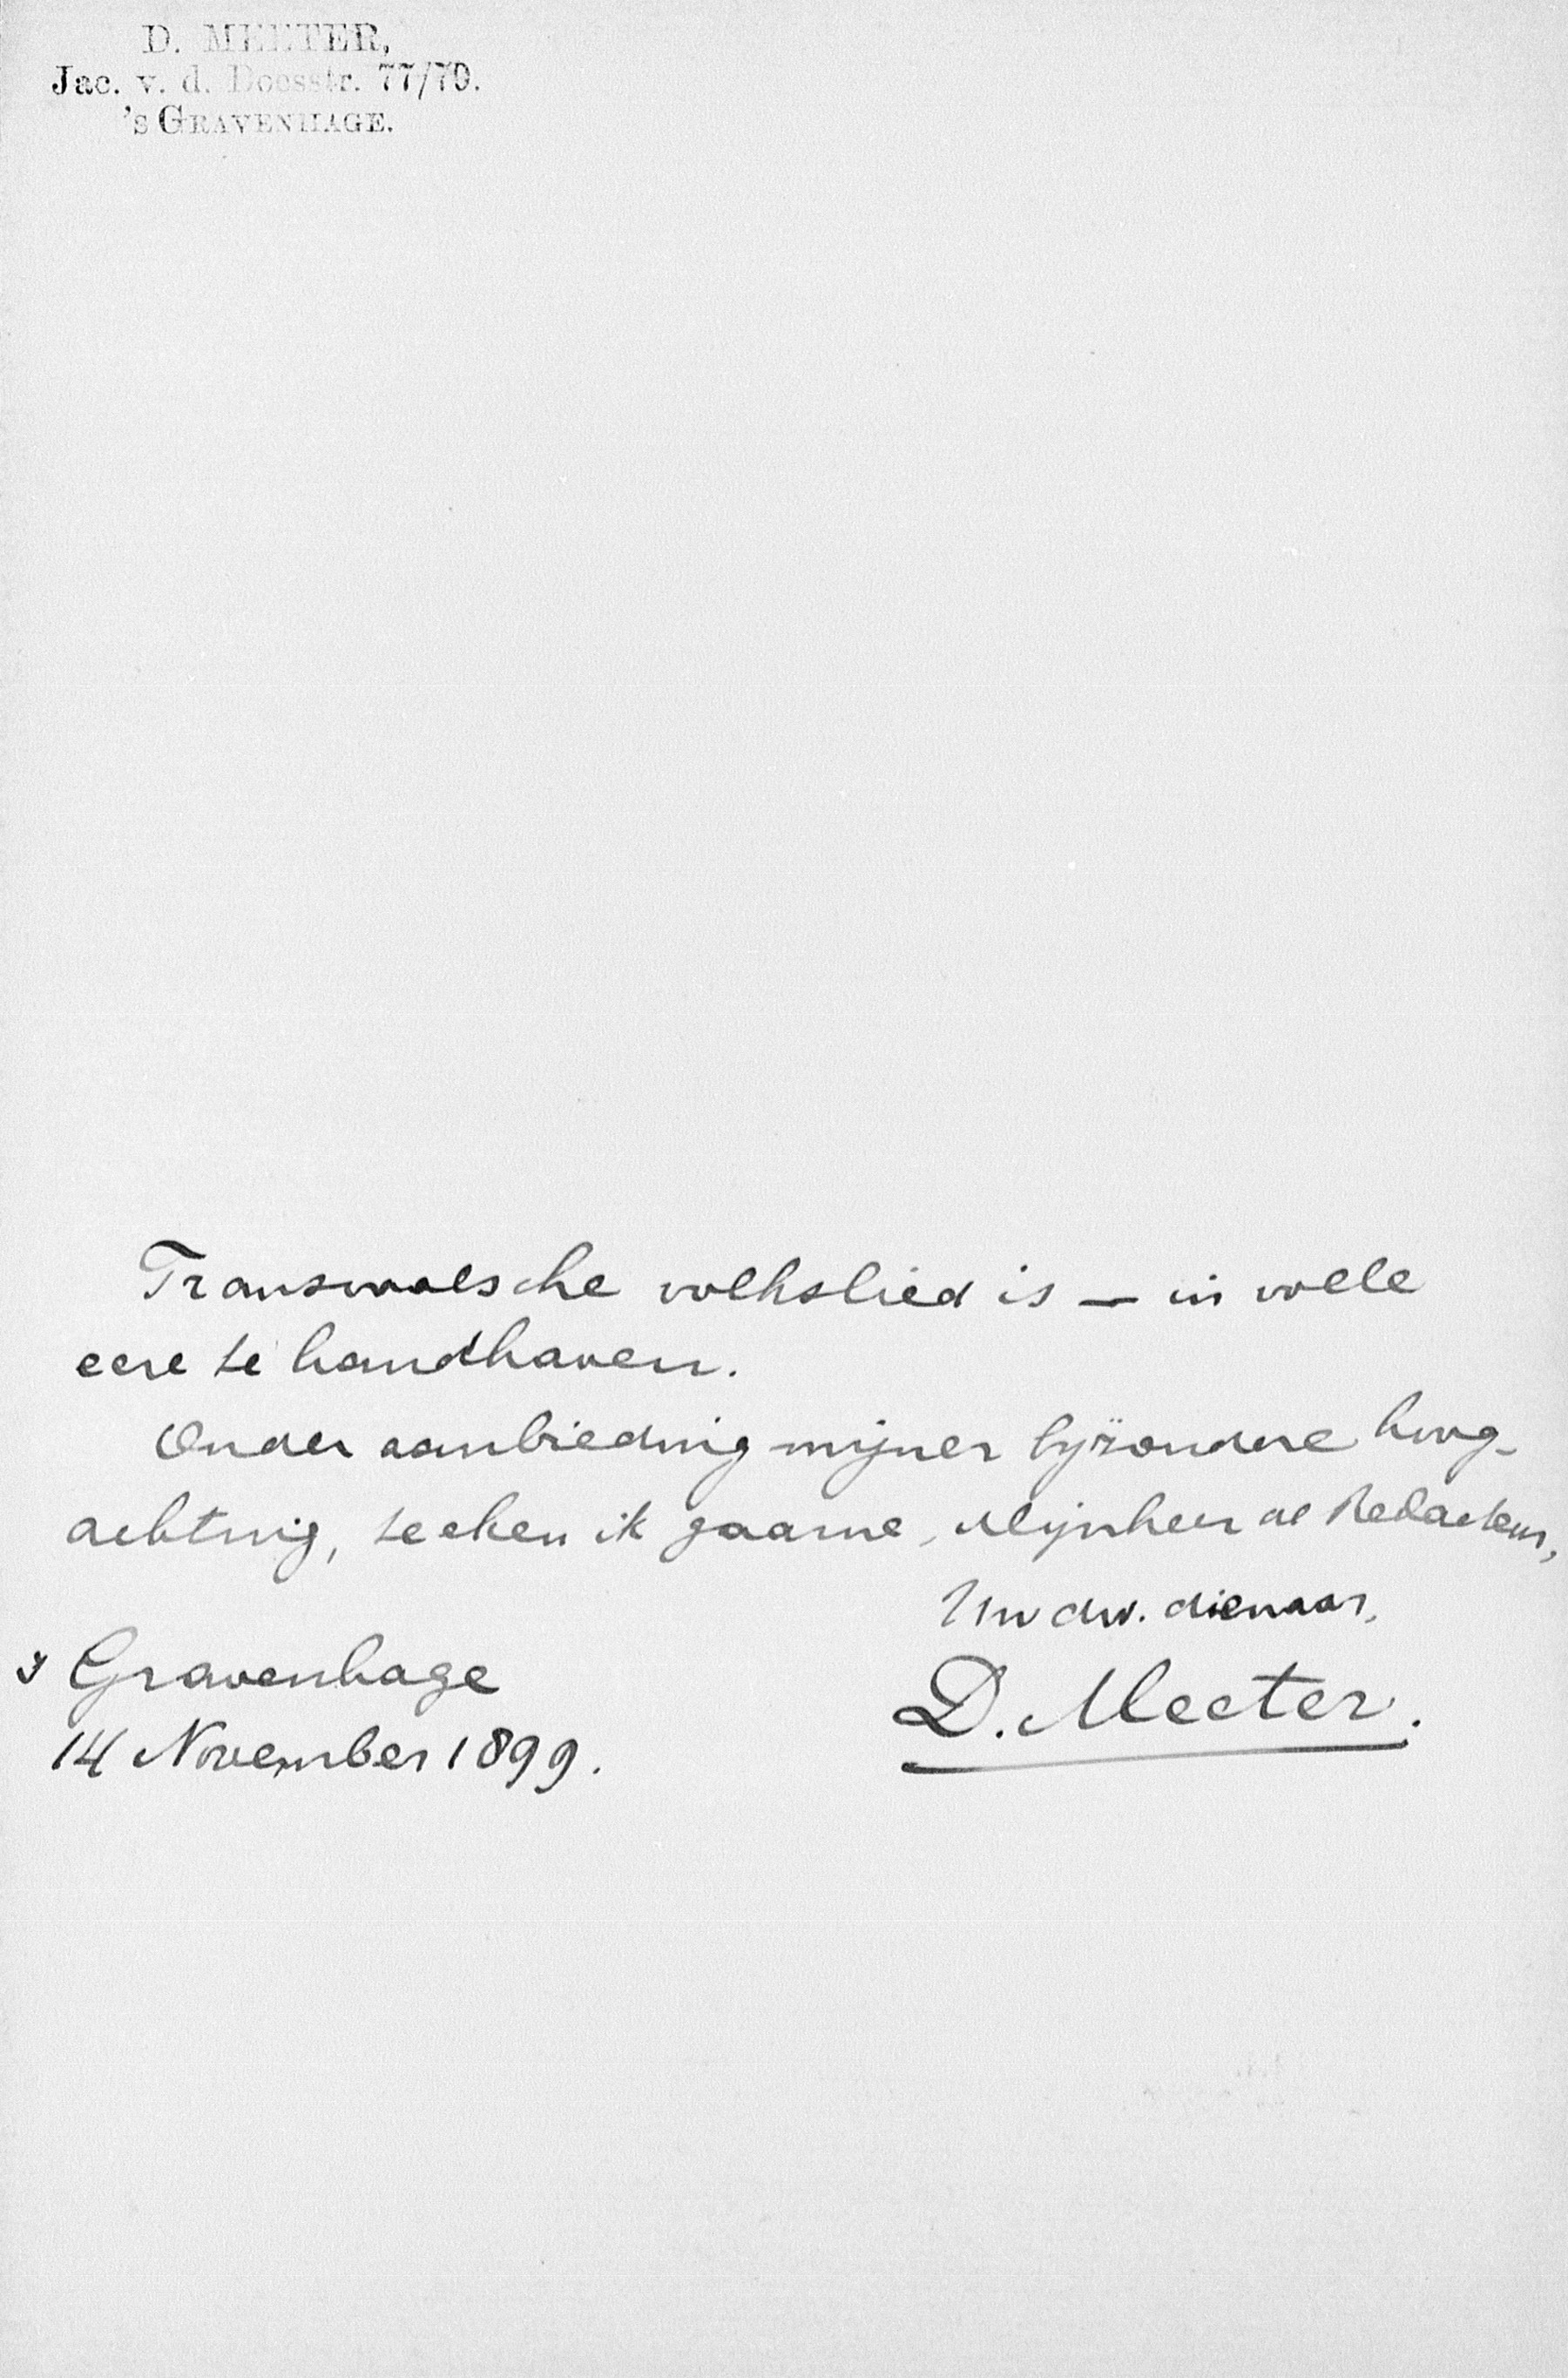 D. MEETER,
Jac. v. d. Doesstr. 77/79.
'S GRAVENHAGE.
Transvaalsche volkslied is — in volle
eere te handhaven.
Onder aanbieding mijner bijzondere hoog-
achting, teeken ik gaarne, Mijnheer de Redacteur,
Uw dw. dienaar,
D. Meeter.
's Gravenhage
14 November 1899.